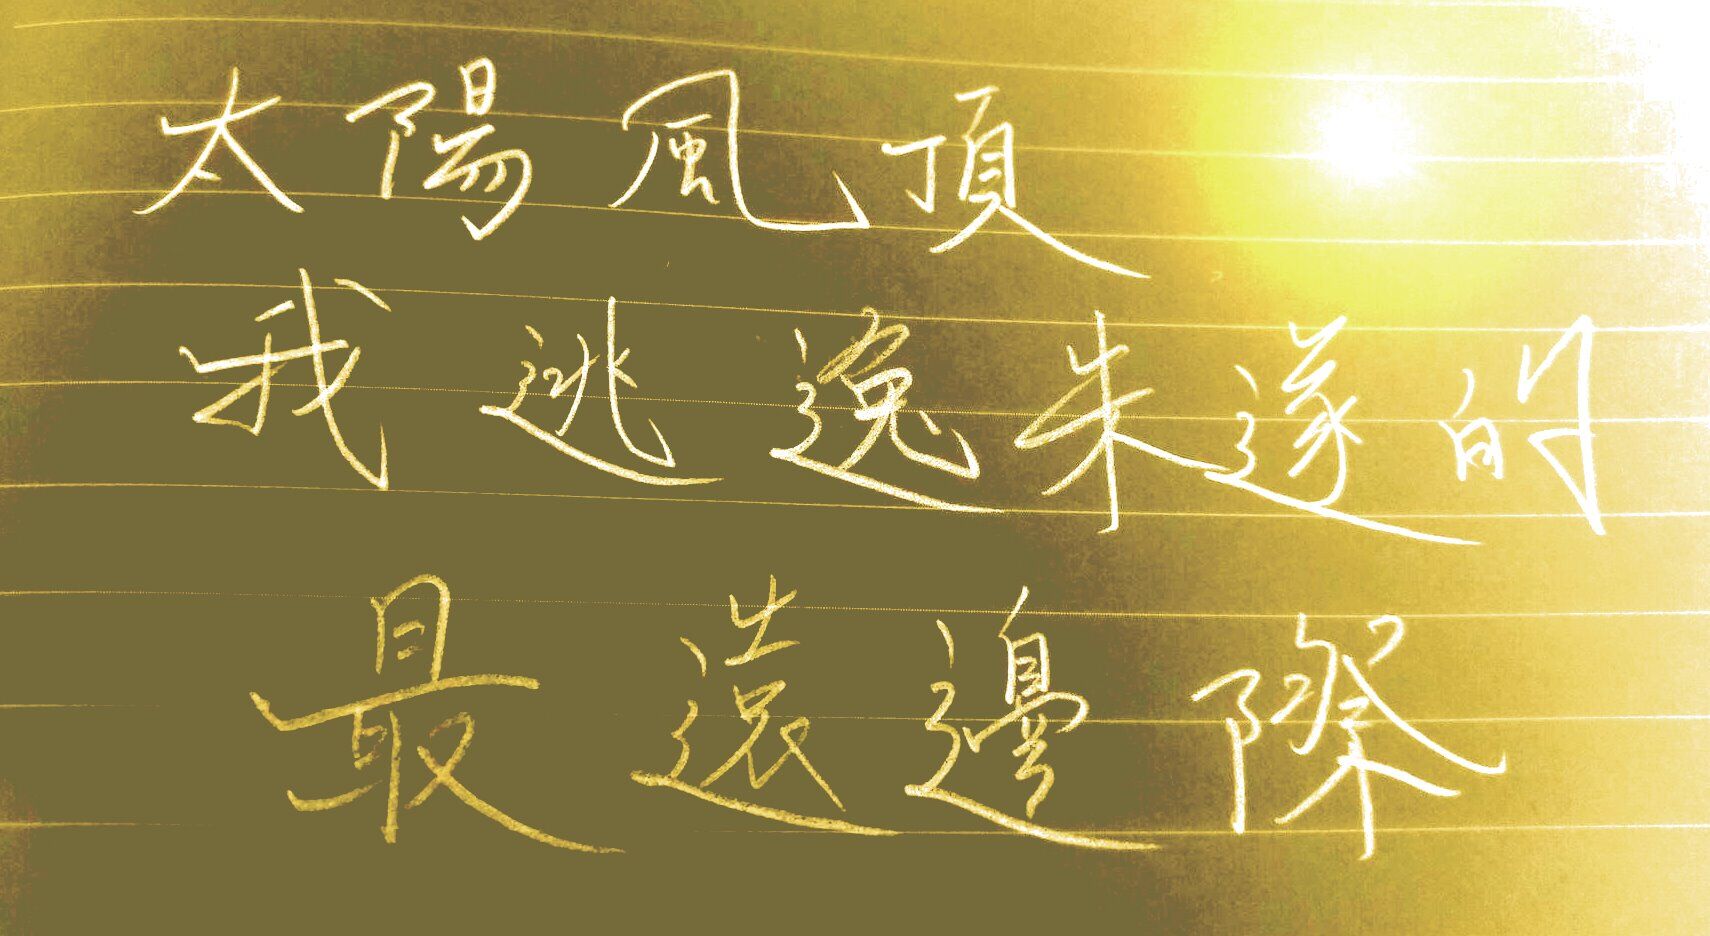 太陽風頂
我逃逸未遂的
最遠邊際